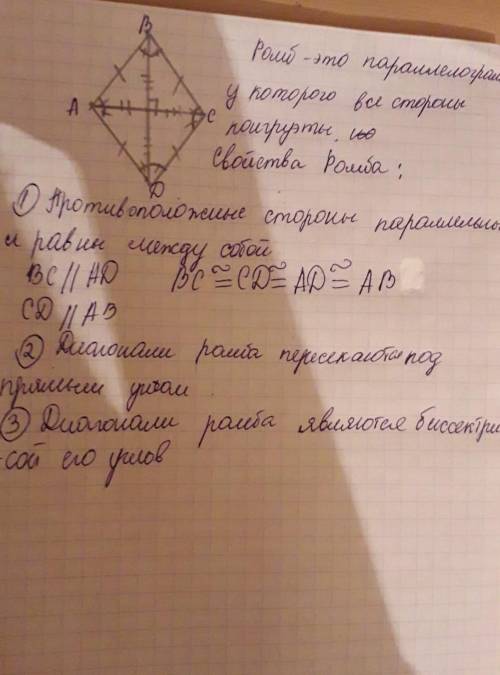 B
Ромб - это параллелограм
A
C
у которого все стороны
D
Свойства Ромба:
① Противоположные стороны параллельны
и равны между собой
BC // AD BC ≅ CD ≅ AD ≅ AB
CD // AB
② Диагонали ромба пересекаются под
прямым углом
③ Диагонали ромба являются биссектри
-сой его углов